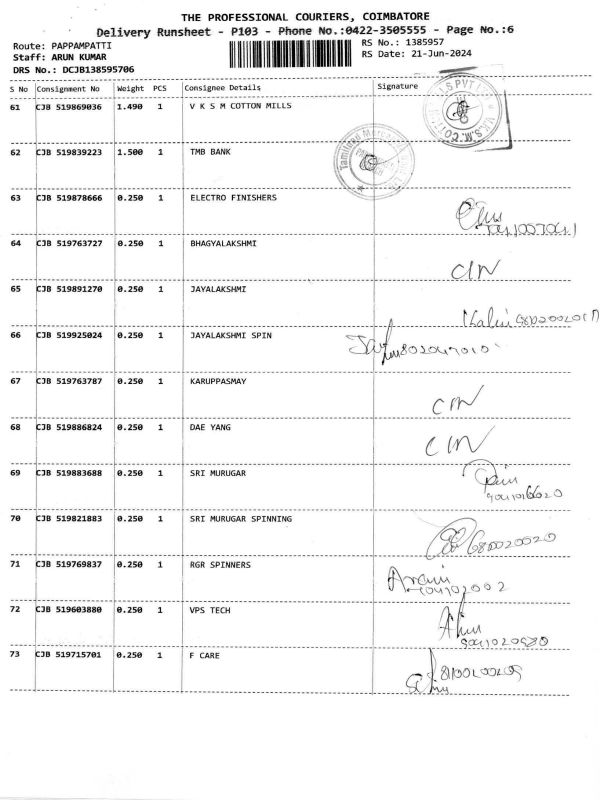 THE PROFESSIONAL COURIERS, COIMBATORE
Delivery Runsheet - P103 - Phone No.:0422-3505555 - Page No.:6
Route: PAPPAMPATTI
RS No.: 1385957
Staff: ARUN KUMAR
RS Date: 21-Jun-2024
DRS No.: DCJB138595706
S No Consignment No Weight PCS Consignee Details Signature
61 CJB 519869036 1.490 1 V K S M COTTON MILLS
62 CJB 519839223 1.500 1 TMB BANK
63 CJB 519878666 0.250 1 ELECTRO FINISHERS
64 CJB 519763727 0.250 1 BHAGYALAKSHMI
65 CJB 519891270 0.250 1 JAYALAKSHMI
66 CJB 519925024 0.250 1 JAYALAKSHMI SPIN
67 CJB 519763787 0.250 1 KARUPPASMAY
68 CJB 519886824 0.250 1 DAE YANG
69 CJB 519883688 0.250 1 SRI MURUGAR
70 CJB 519821883 0.250 1 SRI MURUGAR SPINNING
71 CJB 519769837 0.250 1 RGR SPINNERS
72 CJB 519603880 0.250 1 VPS TECH
73 CJB 519715701 0.250 1 F CARE